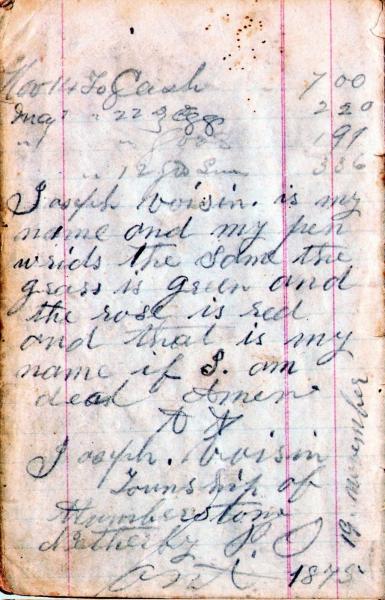 Nov 14 To Cash 7 00
Aug " 22 3 2 20
" " 1 91
" 12 3 36
Joseph Voisin. is my
name and my pen
wrids the same the
grass is green and
the rose is red
and that is my
name if I. am
dead Amen
Joseph. Voisin
Township of
Humberstone
Netherby P O
Ont 1875
19 november